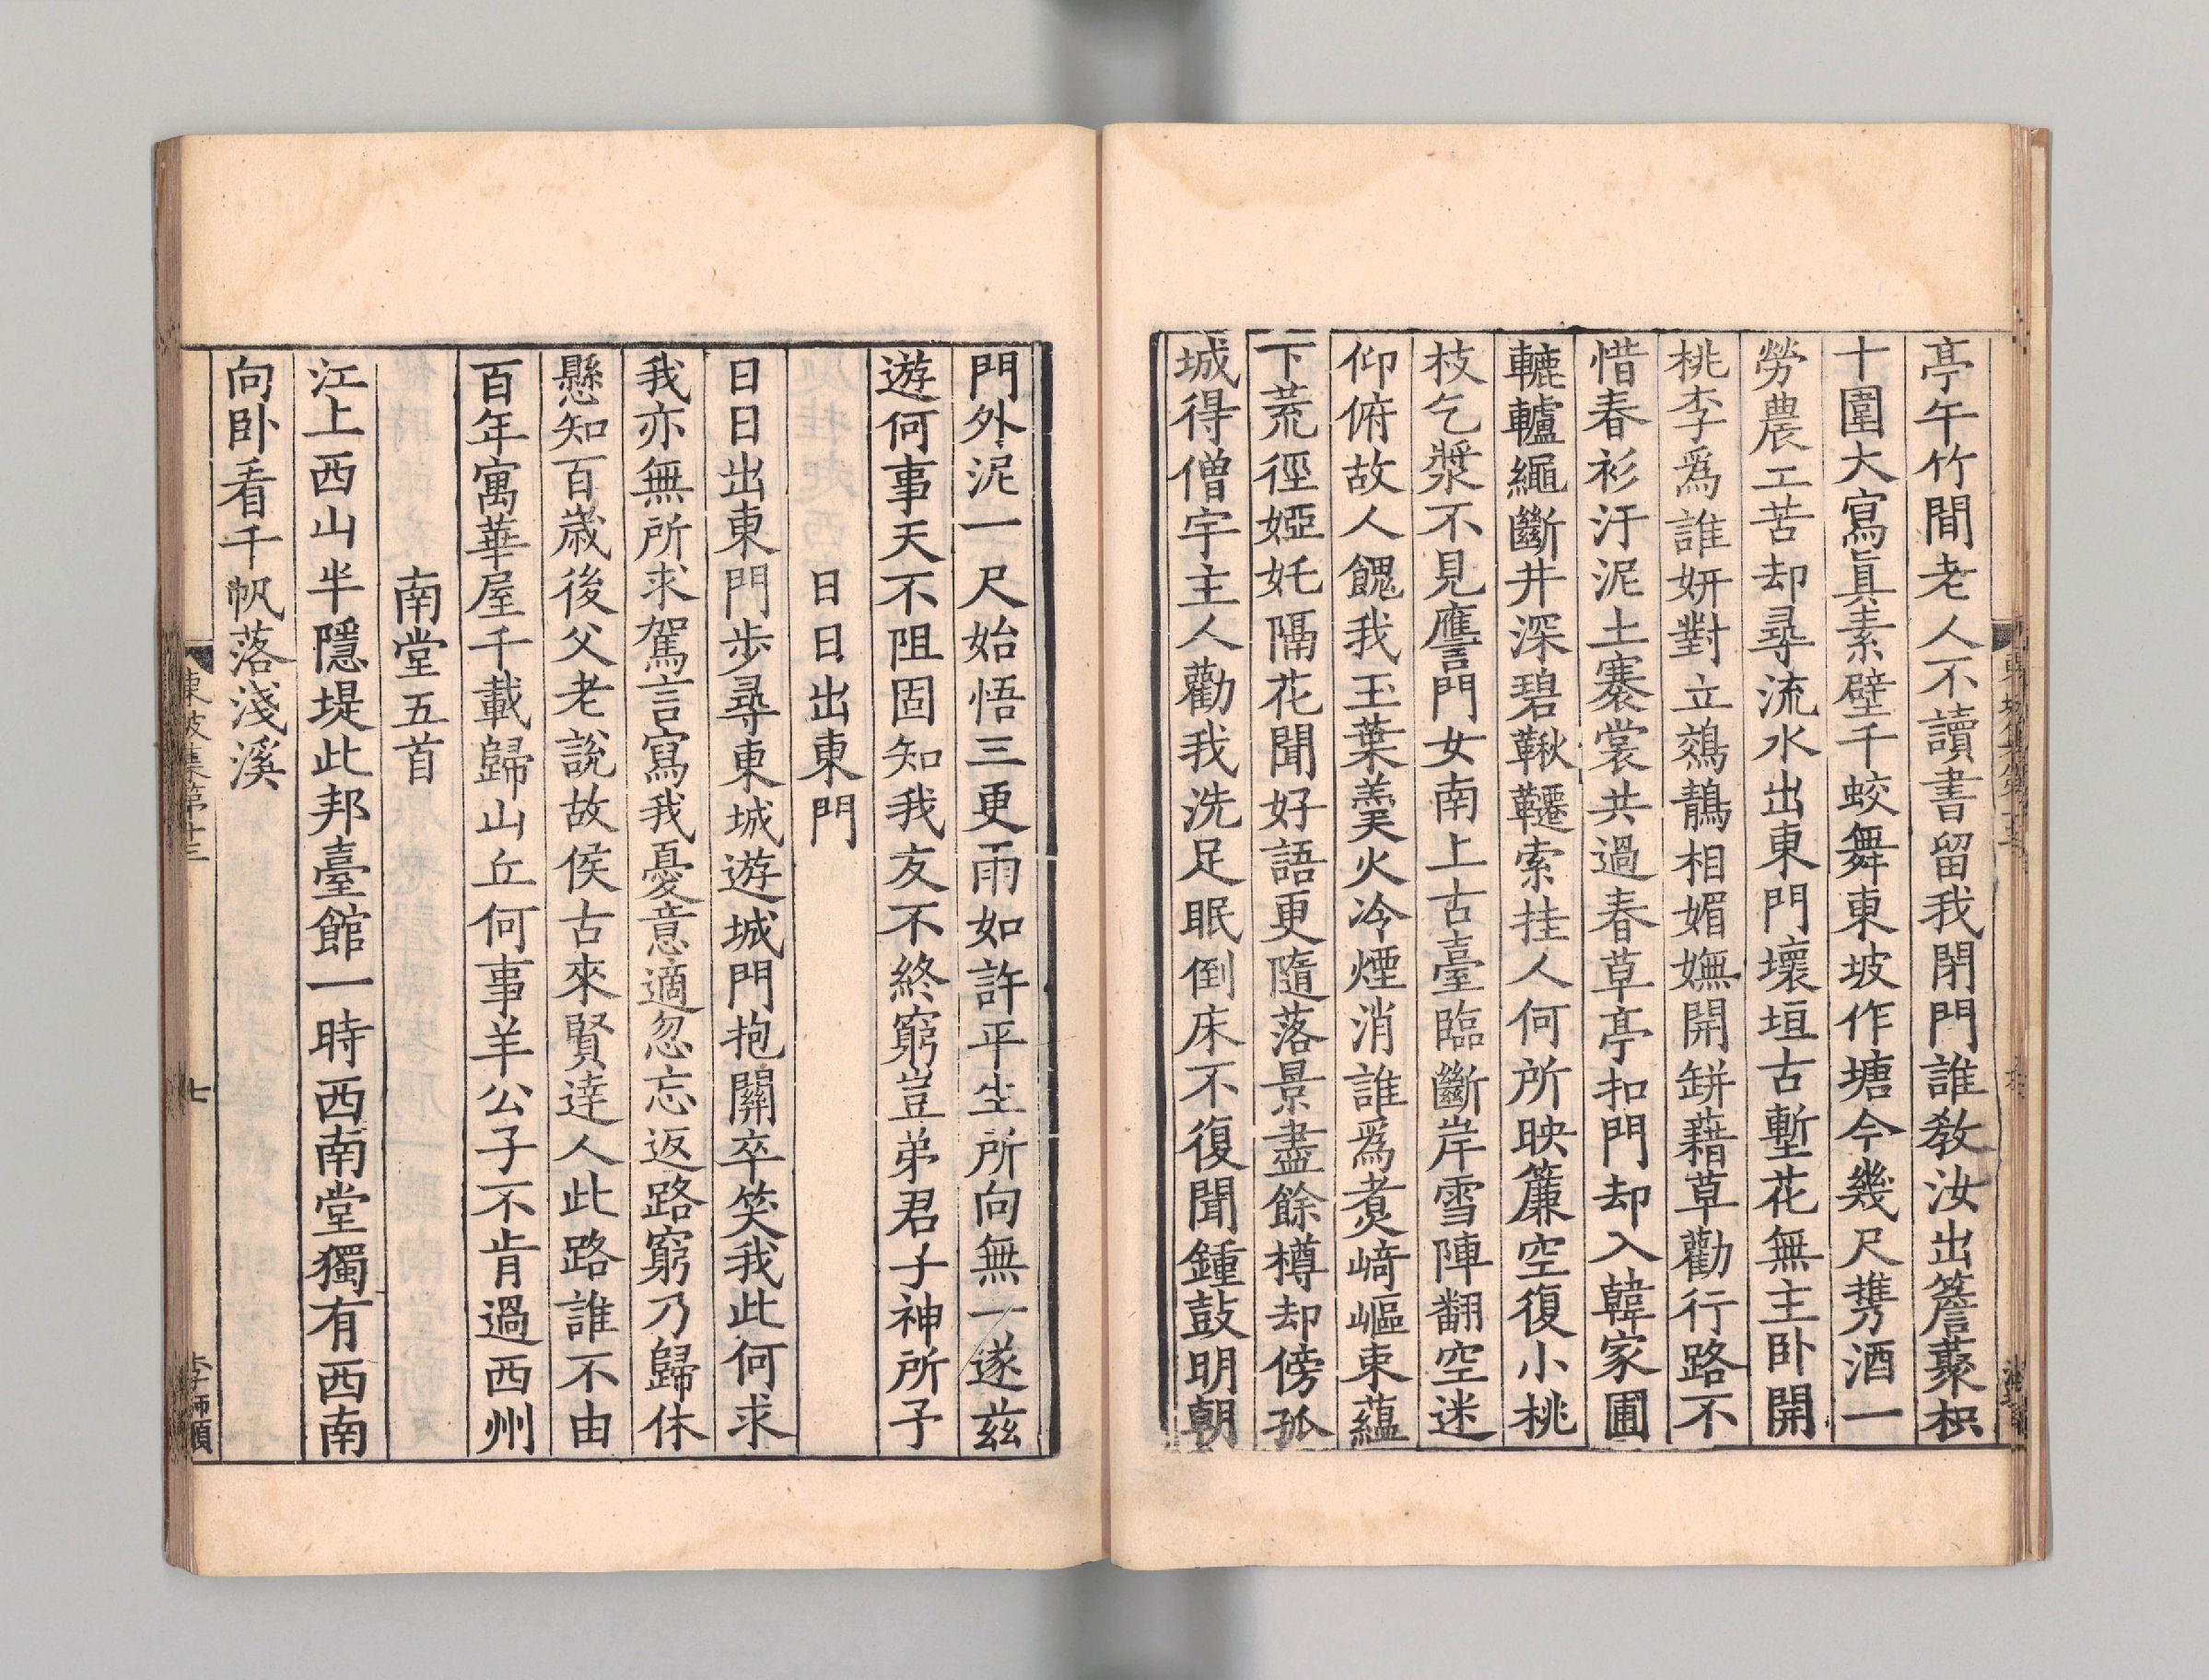 亭午竹間老人不讀書留我閉門誰教汝出簷藂枳
十圍大寫眞素壁千蛟舞東坡作塘今幾尺攜酒一
勞農工苦却尋流水出東門壞垣古塹花無主卧開
桃李爲誰妍對立鵁鶄相媚嫵開缾藉草勸行路不
惜春衫汙泥土褰裳共過春草亭扣門却入韓家圃
轆轤繩斷井深碧鞦韆索挂人何所映簾空復小桃
枝乞漿不見譍門女南上古臺臨斷岸雪陣翻空迷
仰俯故人餽我玉葉羹火冷煙消誰爲煮崎嶇束蘊
下荒徑婭奼隔花聞好語更隨落景盡餘樽却傍孤
城得僧宇主人勸我洗足眠倒床不復聞鍾鼓明朝
門外泥一尺始悟三更雨如許平生所向無一遂茲
遊何事天不阻固知我友不終窮豈弟君子神所予
日日出東門
日日出東門步尋東城遊城門抱關卒笑我此何求
我亦無所求駕言寫我憂意適忽忘返路窮乃歸休
懸知百歲後父老説故侯古來賢達人此路誰不由
百年寓華屋千載歸山丘何事羊公子不肯過西州
南堂五首
江上西山半隱堤此邦臺館一時西南堂獨有西南
向卧看千帆落淺溪
東坡集第十三
七
李師順